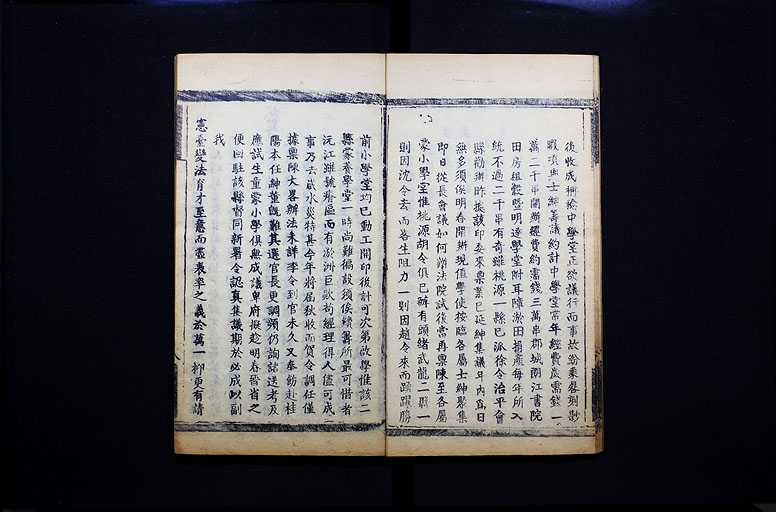 復收成稍稔中學堂正欲議行而事故紛乘
與士紳籌議約計中學堂常年經費歲需錢一
萬二千串開辦經費約需錢三萬串郡城朗江書院
田房租穀暨明達學堂附耳障淤田捐產每年所入
統不過二千串有奇雖桃源一縣已派徐令治平會
縣勸辦昨據該印委來稟業已延紳集議年內為日
無多須俟明春開辦現值學使按臨各屬士紳聚集
即日從長會議如何辦法院試後當再稟陳至各屬
蒙小學堂惟桃源胡令俱已辦有頭緒武龍二縣一
則因沈令去而吝生阻力一則因趙令來而踴躍勝
前小學堂均已動工開印後計可次第啟學惟該二
縣蒙養學堂一時尚難徧設須俟續籌所最可惜者
沅江雖號瘠區而有淤洲巨款苟經理得人儘可成
事乃去歲水災特甚今年將屆秋收而賀令調任僅
據稟陳大畧辦法未詳李令到官未久又奉飭赴桂
陽本任紳董既難其選官長更調頻仍詢諮送考及
應試生童蒙小學俱無成議卑府擬趁明春晉省之
便回駐該縣督同新署令認真集議期於必成以副
我
憲臺變法育才至意而盡表率之義於萬一抑更有請